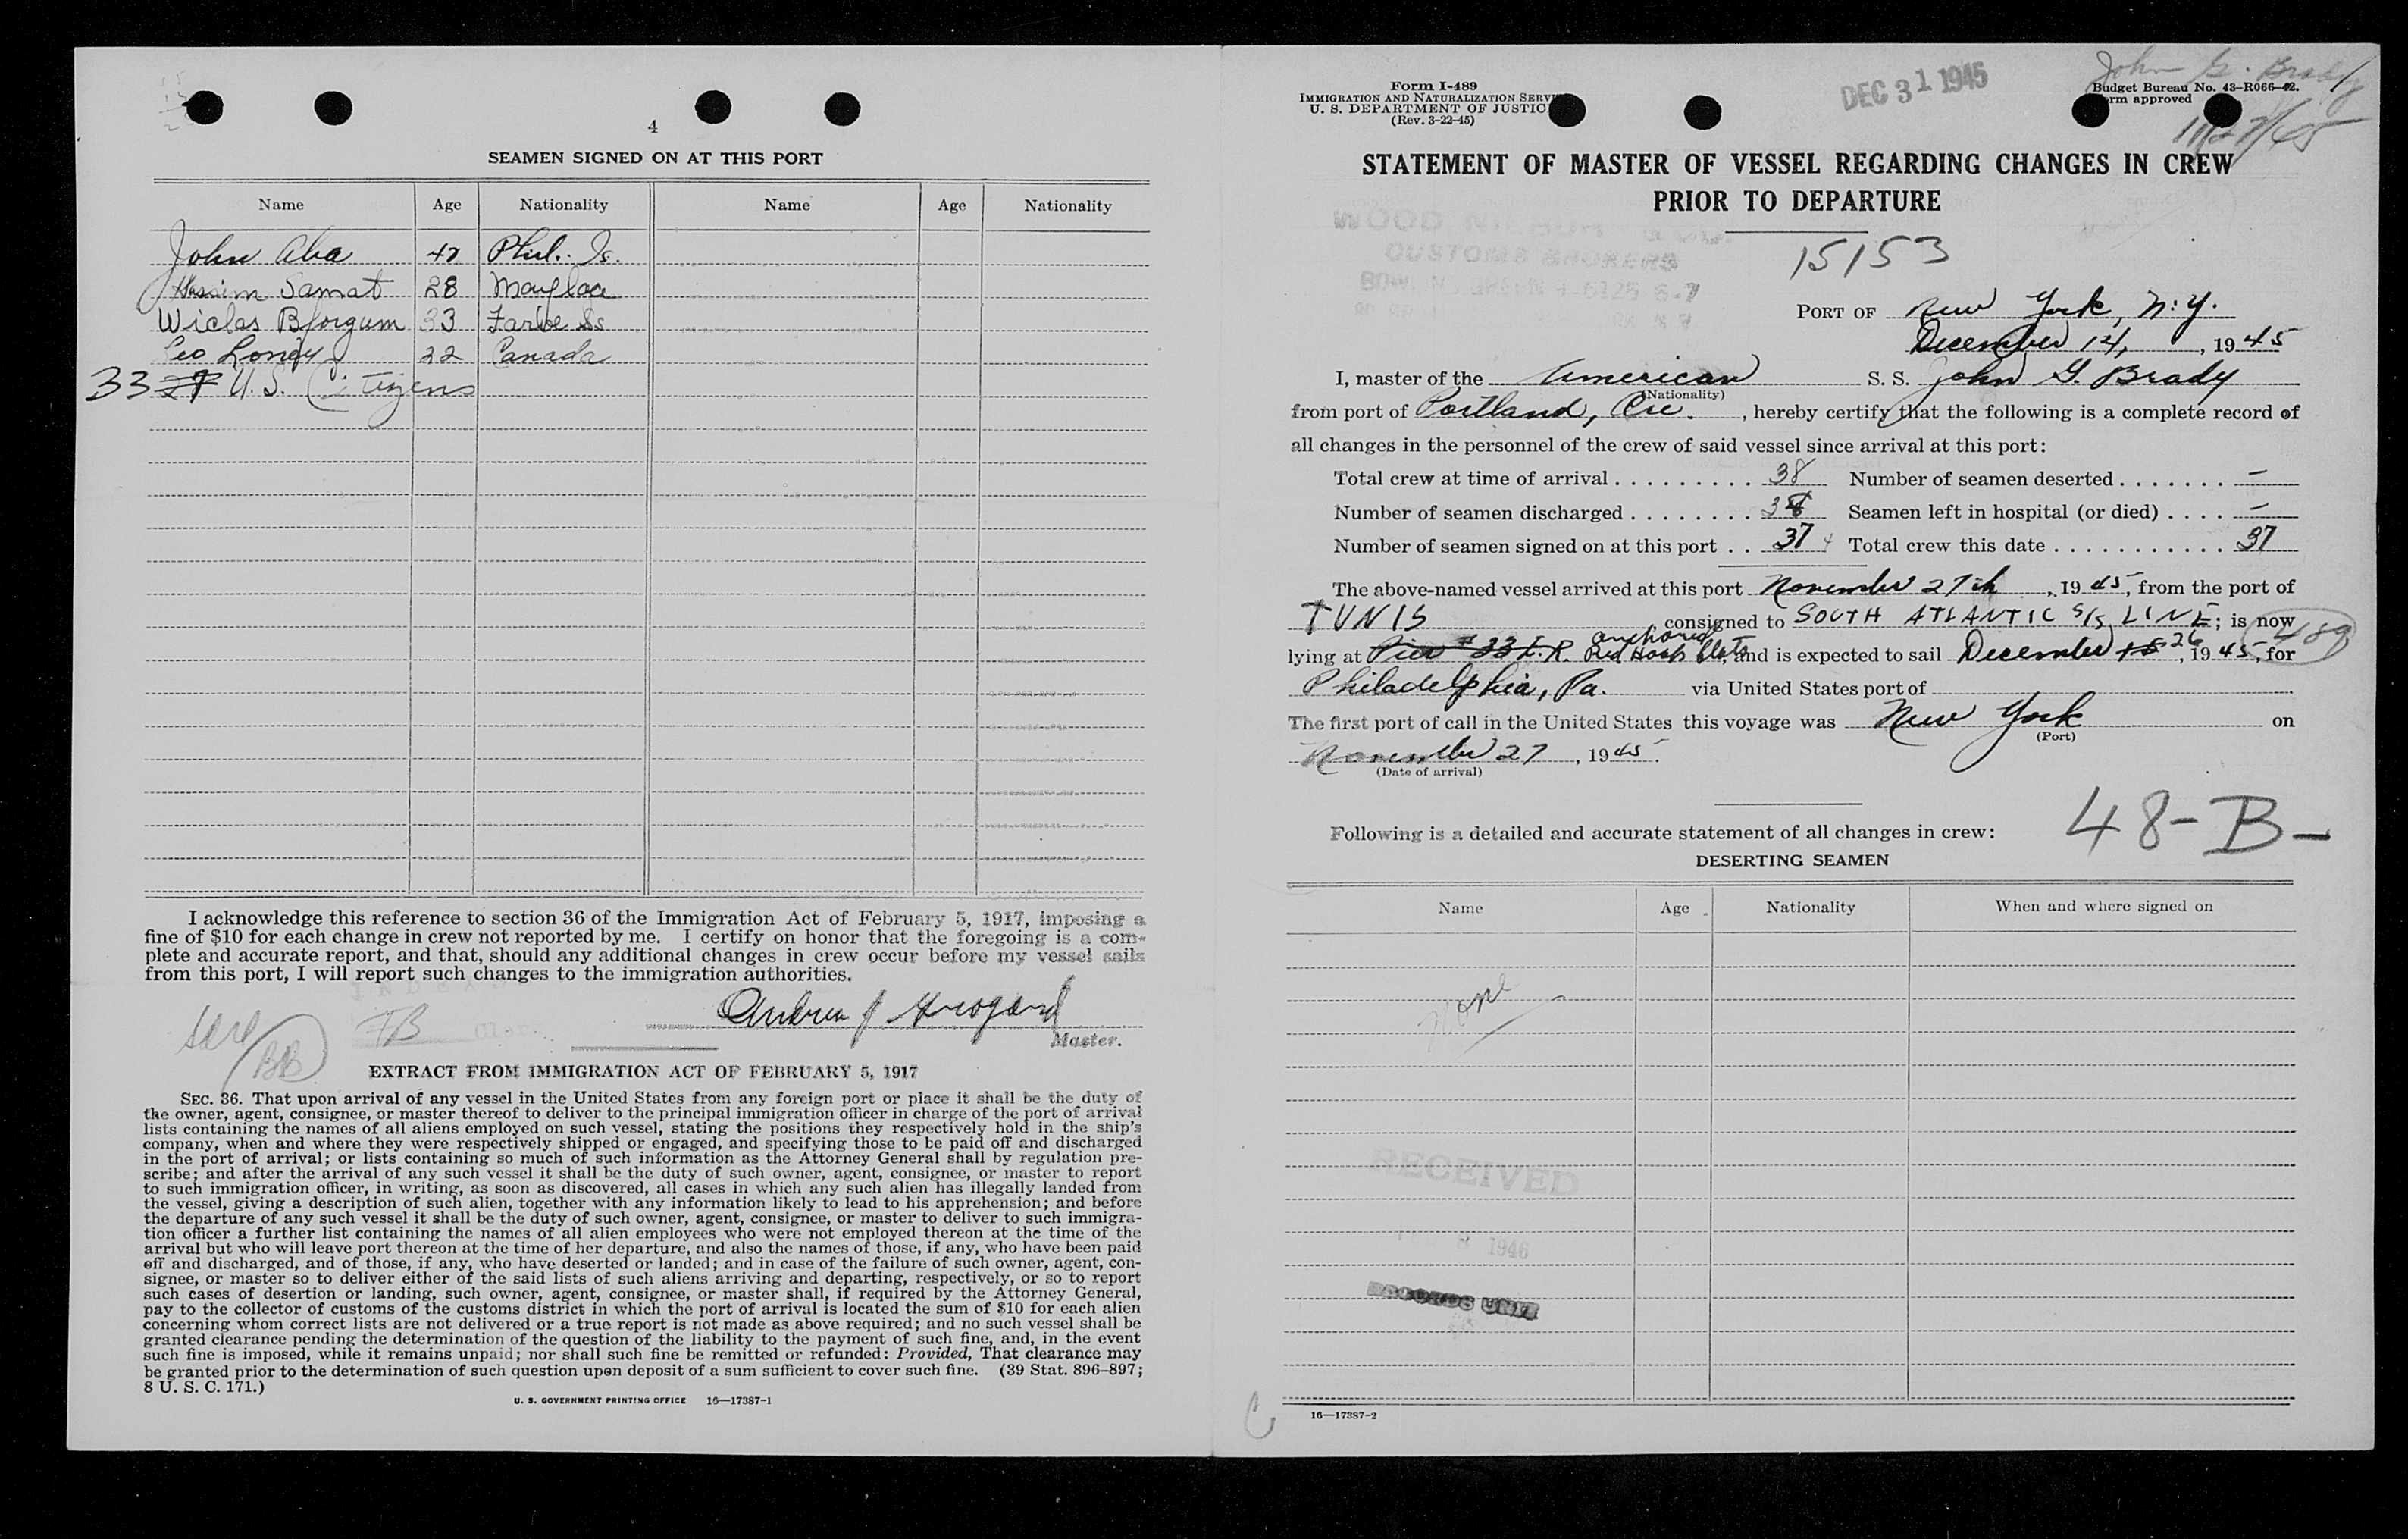 4
SEAMEN SIGNED ON AT THIS PORT
Name Age Nationality Name Age Nationality
John Aba 47 Phil. Is.
Hassim Samat 28
Wiclas Bjorgum 33 Faroe Is
Leo Longy 22 Canada
33 U.S. Citizens
I acknowledge this reference to section 36 of the Immigration Act of February 5, 1917, imposing a
fine of $10 for each change in crew not reported by me. I certify on honor that the foregoing is a com-
plete and accurate report, and that, should any additional changes in crew occur before my vessel sails
from this port, I will report such changes to the immigration authorities.
Andrew J
Master.
BB
TB
EXTRACT FROM IMMIGRATION ACT OF FEBRUARY 5, 1917
SEC. 36. That upon arrival of any vessel in the United States from any foreign port or place it shall be the duty of
the owner, agent, consignee, or master thereof to deliver to the principal immigration officer in charge of the port of arrival
lists containing the names of all aliens employed on such vessel, stating the positions they respectively hold in the ship's
company, when and where they were respectively shipped or engaged, and specifying those to be paid off and discharged
in the port of arrival; or lists containing so much of such information as the Attorney General shall by regulation pre-
scribe; and after the arrival of any such vessel it shall be the duty of such owner, agent, consignee, or master to report
to such immigration officer, in writing, as soon as discovered, all cases in which any such alien has illegally landed from
the vessel, giving a description of such alien, together with any information likely to lead to his apprehension; and before
the departure of any such vessel it shall be the duty of such owner, agent, consignee, or master to deliver to such immigra-
tion officer a further list containing the names of all alien employees who were not employed thereon at the time of the
arrival but who will leave port thereon at the time of her departure, and also the names of those, if any, who have been paid
off and discharged, and of those, if any, who have deserted or landed; and in case of the failure of such owner, agent, con-
signee, or master so to deliver either of the said lists of such aliens arriving and departing, respectively, or so to report
such cases of desertion or landing, such owner, agent, consignee, or master shall, if required by the Attorney General,
pay to the collector of customs of the customs district in which the port of arrival is located the sum of $10 for each alien
concerning whom correct lists are not delivered or a true report is not made as above required; and no such vessel shall be
granted clearance pending the determination of the question of the liability to the payment of such fine, and, in the event
such fine is imposed, while it remains unpaid; nor shall such fine be remitted or refunded: Provided, That clearance may
be granted prior to the determination of such question upon deposit of a sum sufficient to cover such fine. (39 Stat. 896-897;
8 U. S. C. 171.)
U. S. GOVERNMENT PRINTING OFFICE 16—17387-1
Form I-489
IMMIGRATION AND NATURALIZATION
U. S. DEPARTMENT OF JUSTICE
(Rev. 3-22-45)
DEC 31 1945
John G. Brady
Budget Bureau No. 43-R066-42.
Form approved
11/27/45
STATEMENT OF MASTER OF VESSEL REGARDING CHANGES IN CREW
PRIOR TO DEPARTURE
CUSTOMS BROKERS
15153
PORT OF New York, N.Y.
December 14, , 19 45
I, master of the American S. S. John G. Brady
(Nationality)
from port of Portland, Ore. , hereby certify that the following is a complete record of
all changes in the personnel of the crew of said vessel since arrival at this port:
Total crew at time of arrival 38 Number of seamen deserted —
Number of seamen discharged 38 Seamen left in hospital (or died) —
Number of seamen signed on at this port 37 Total crew this date 37
The above-named vessel arrived at this port November 27th , 19 45, from the port of
TUNIS consigned to SOUTH ATLANTIC S/S LINE; is now
489
anchored
lying at Pier #33 E.R. Red Hook Flats, and is expected to sail December 15 26, 19 45, for
Philadelphia, Pa. via United States port of
The first port of call in the United States this voyage was New York on
(Port)
November 27 , 19 45.
(Date of arrival)
48-B-
Following is a detailed and accurate statement of all changes in crew:
DESERTING SEAMEN
Name Age Nationality When and where signed on
None
RECEIVED
1946
RECORDS UNIT
16—17387-2